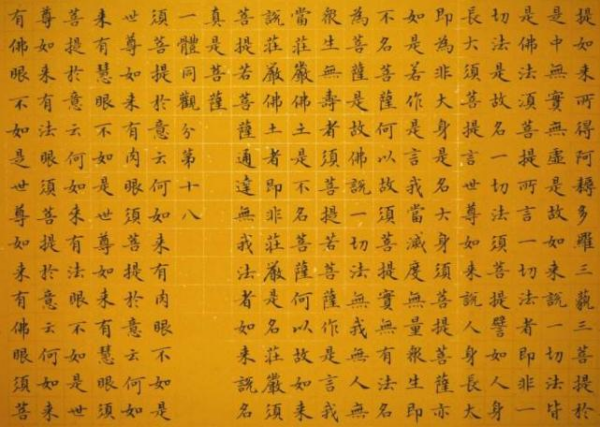 提如來所得阿耨多羅三藐三菩提於
是中無實無虛是故如來說一切法皆
是佛法須菩提所言一切法者即非一
切法是故名一切法須菩提譬如人身
長大須菩提言世尊如來說人身長大
即為非大身是名大身須菩提菩薩亦
如是若作是言我當滅度無量衆生即
不名菩薩何以故須菩提實無有法名
為菩薩是故佛說一切法無我無人無
衆生無壽者須菩提若菩薩作是言我
當莊嚴佛土是不名菩薩何以故如來
說莊嚴佛土者即非莊嚴是名莊嚴須
菩提若菩薩通達無我法者如來說名
真是菩薩
一體同觀分第十八
須菩提於意云何如來有肉眼不如是
世尊如來有肉眼須菩提於意云何如
來有慧眼不如是世尊如來有慧眼須
菩提於意云何如來有法眼不如是世
尊如來有法眼須菩提於意云何如來
有佛眼不如是世尊如來有佛眼須菩